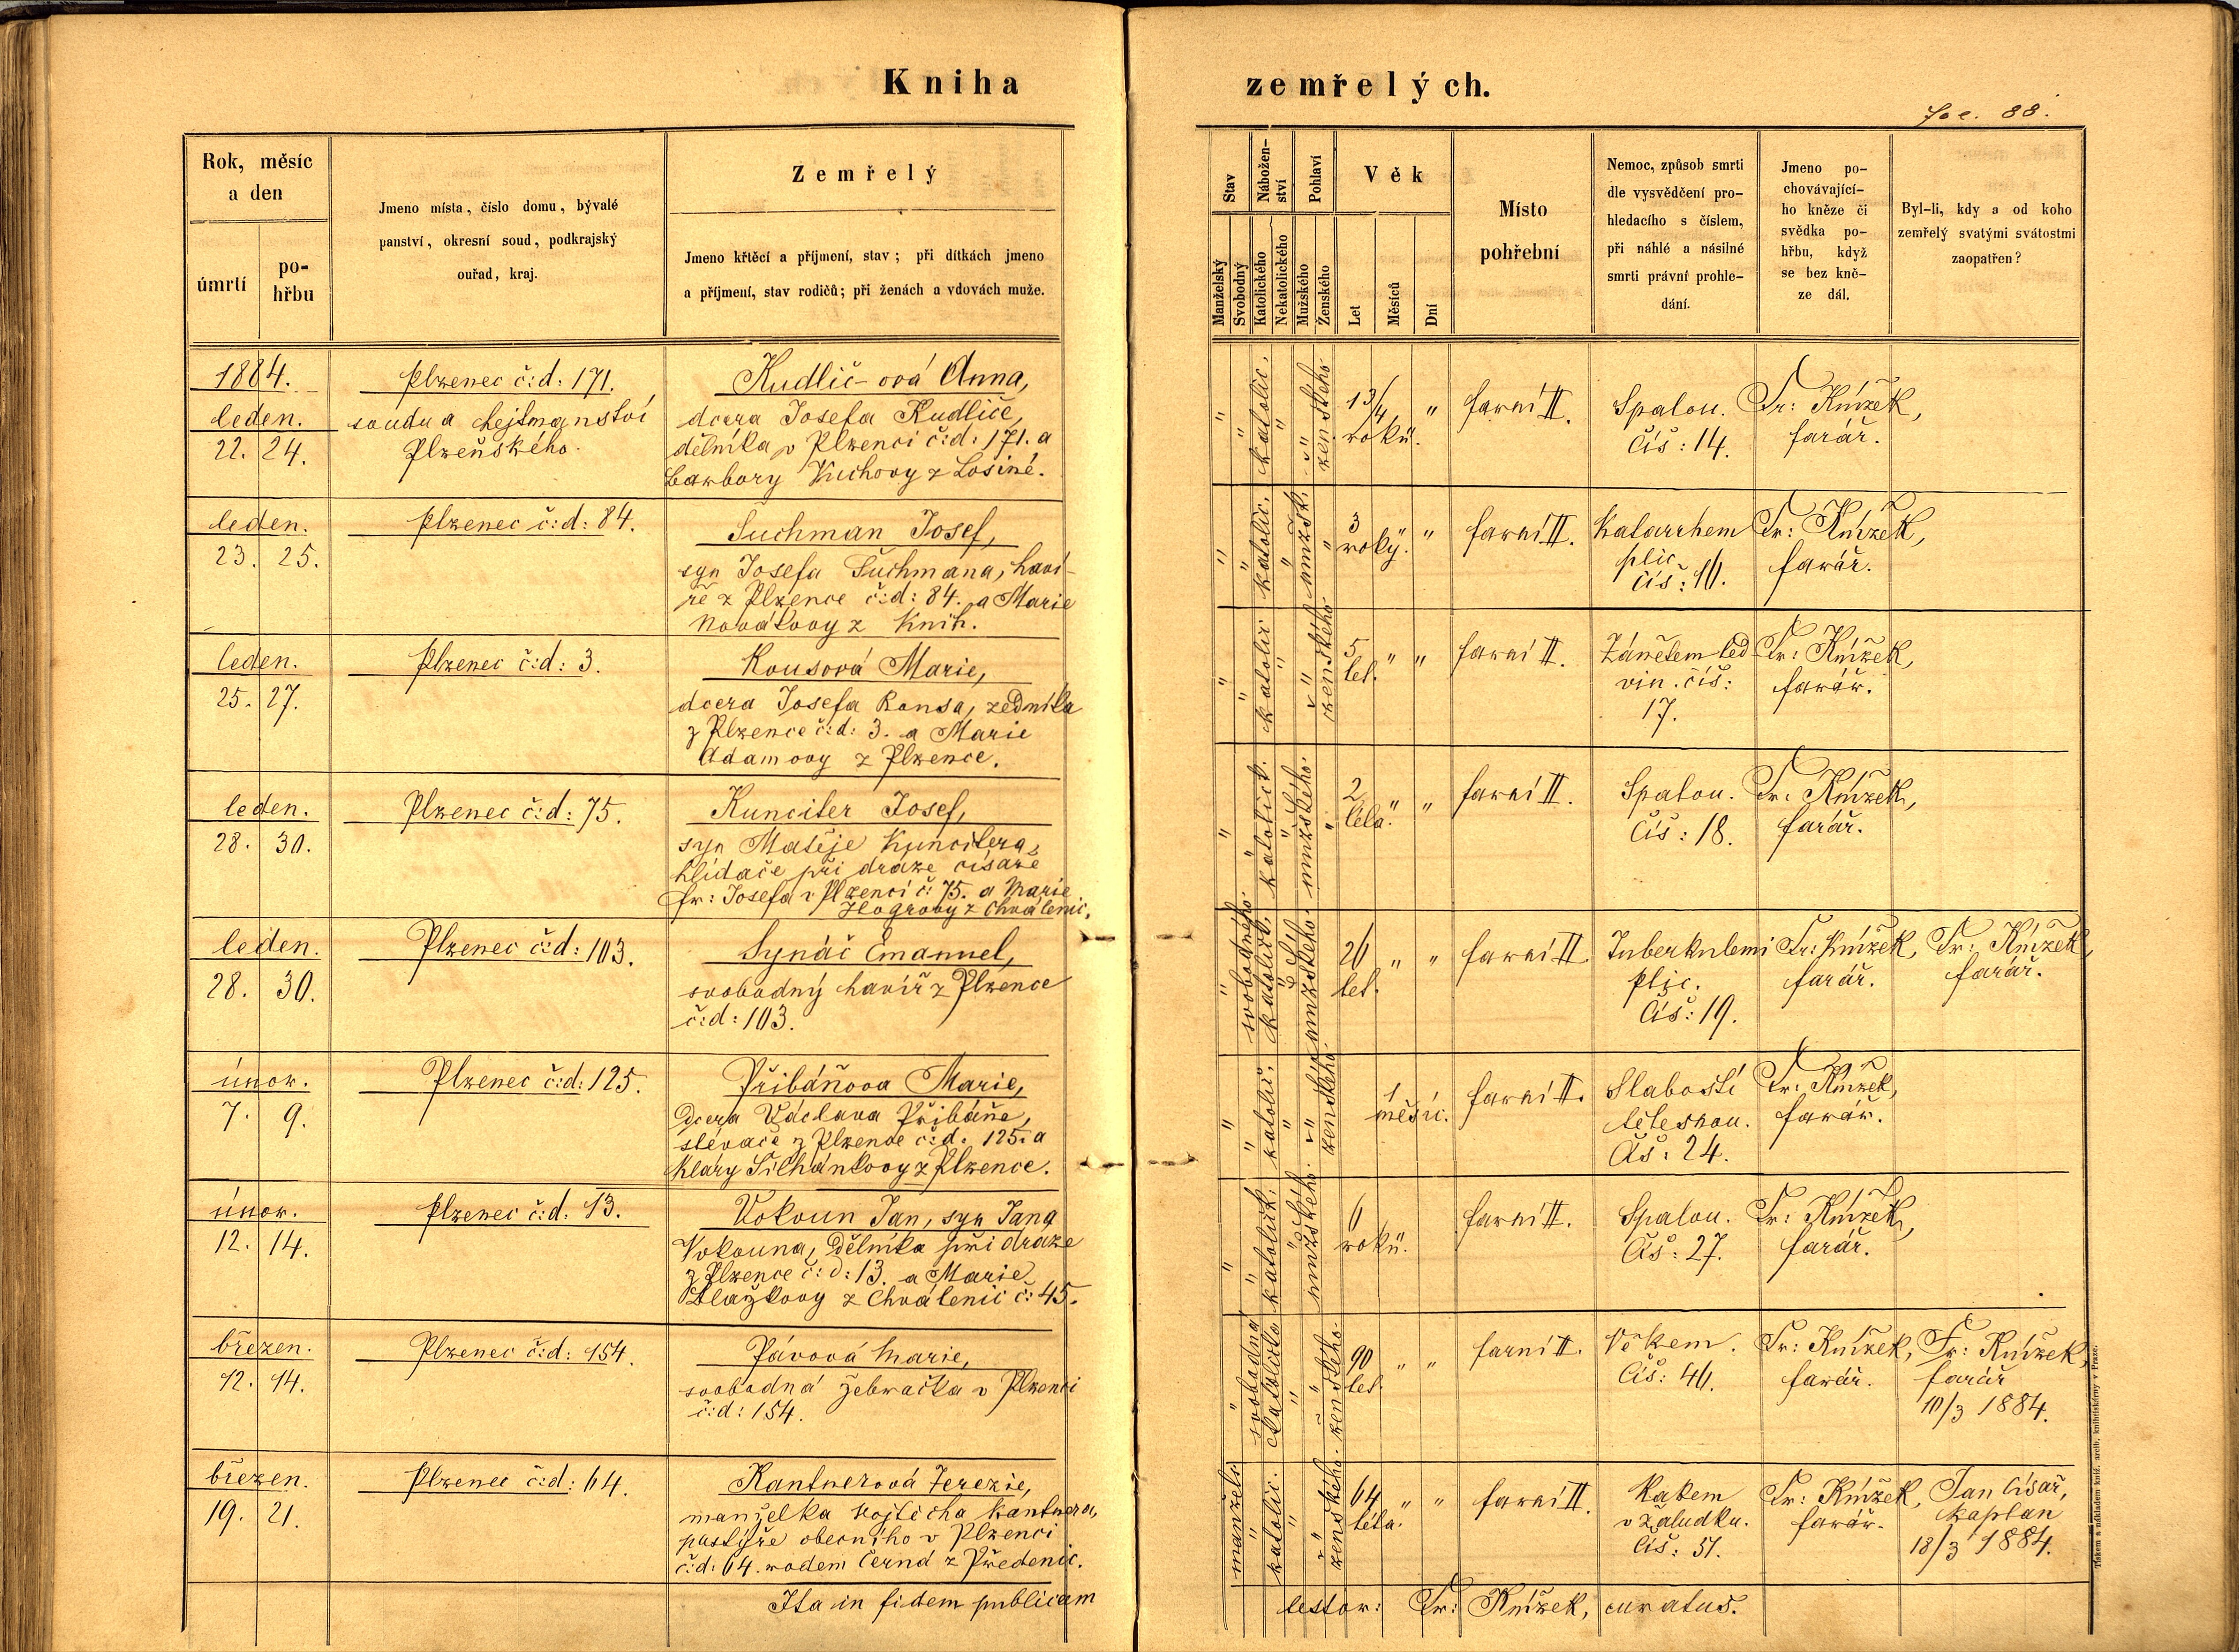 Kniha zemřelých.
Foe. 88.
Rok, měsíc
a den
úmrtí
po-
hřbu
Jmeno místa, číslo domu, bývalé
panství, okresní soud, podkrajský
ouřad, kraj.
Zemřelý
Jmeno křtěcí a příjmení, stav; při dítkách jmeno
a příjmení, stav rodičů; při ženách a vdovách muže.
Stav
Manželský
Svobodný
Nábožen-
ství
Katolického
Nekatolického
Pohlaví
Mužského
Ženského
Věk
Let
Měsíců
Dní
Místo
pohřební
Nemoc, způsob smrti
dle vysvědčení pro-
hledacího s číslem,
při náhlé a násilné
smrti právní prohle-
dání.
Jmeno po-
chovávající-
ho kněze či
svědka po-
hřbu, když
se bez kně-
ze dál.
Byl-li, kdy a od koho
zemřelý svatými svátostmi
zaopatřen?
1884.
leden.
22. 24.
Plzenec č:d: 171.
soudu a hejtmanství
Plzeňského.
Kudlič-ová Anna,
dcera Josefa Kudliče,
dělníka v Plzenci č:d: 171. a
Barbory Kuchovy z Losiné.
" " katolic. " " ženského
1 3/4 "
roků.
farní II.
Spalou.
Čís: 14.
Fr: Knížek,
farář.
leden.
23. 25.
Plzenec č:d: 84.
Suchman Josef,
syn Josefa Suchmana, haví-
ře z Plzence č:d: 84. a Marie
Novákovy z Knih.
" " katolic. " mužsk. "
3 "
roky.
farní II.
Katarrhem
plic
čís: 16.
Fr: Knížek,
farář.
leden.
25. 27.
Plzenec č:d: 3.
Kousová Marie,
dcera Josefa Kousa, zedníka
z Plzence č:d: 3. a Marie
Adamovy z Plzence.
" " katolic " " ženského
5 " "
let.
farní II.
Zánětem led
vin. čís:
17.
Fr: Knížek,
farář.
leden.
28. 30.
Plzenec č:d: 75.
Kunciter Josef,
syn Matěje Kuncitera,
hlídače při dráze císaře
fr: Josefa v Plzenci č: 75. a Marie
z Chválenic.
" " katolick. " mužského. "
2 " "
léta.
farní II.
Spalou.
Čís: 18.
Fr: Knížek,
farář.
leden.
28. 30.
Plzenec č:d: 103.
Synáč Emanuel,
svobodný havíř z Plzence
č:d: 103.
" svobodného. katolick. " mužského.
26 " "
let.
farní II
Tuberkulemi
plic.
Čís: 19.
Fr: Knížek,
farář.
Fr: Knížek,
farář.
únor.
7. 9.
Plzenec č:d: 125.
Přibáňova Marie,
Dcera Václava Přibáňe,
slévače z Plzence č:d: 125. a
Kláry Silhánkovy z Plzence.
" " katolic. " " ženského.
1
měsíc.
farní II.
Slabostí
tělesnou.
Čís: 24.
Fr: Knížek,
farář.
únor.
12. 14.
Plzenec č:d: 13.
Vokoun Jan, syn Jana
Vokouna, Dělníka při dráze
z Plzence č:d: 13. a Marie
Blažkovy z Chválenic č: 45.
" " katolick. " mužského.
6
roků.
farní II.
Spalou.
Čís: 27.
Fr: Knížek,
farář.
březen.
12. 14.
Plzenec č:d: 154.
Pávová Marie,
svobodná žebračka v Plzenci
č:d: 154.
" svobodná " " ženského.
90 " "
let.
farní II.
Věkem.
Čís: 46.
Fr: Knížek,
farář.
Fr: Knížek,
farář
10/3 1884.
březen.
19. 21.
Plzenec č:d: 64.
Kantnerová Terezie,
manželka Vojtěcha Kantnera,
pastýře obecního v Plzenci
č:d: 64. rodem Černá z Předenic.
manžels. " katolic. " " ženského.
64 " "
léta.
farní II
Rakem
v žaludku.
Čís: 51.
Fr: Knížek,
farář.
Jan Císař,
kaplan
18/3 1884.
Ita in fidem publicam
testor: Fr: Knížek, curatus.
Tiskem a nákladem kníž. arcib. knihtiskárny v Praze.